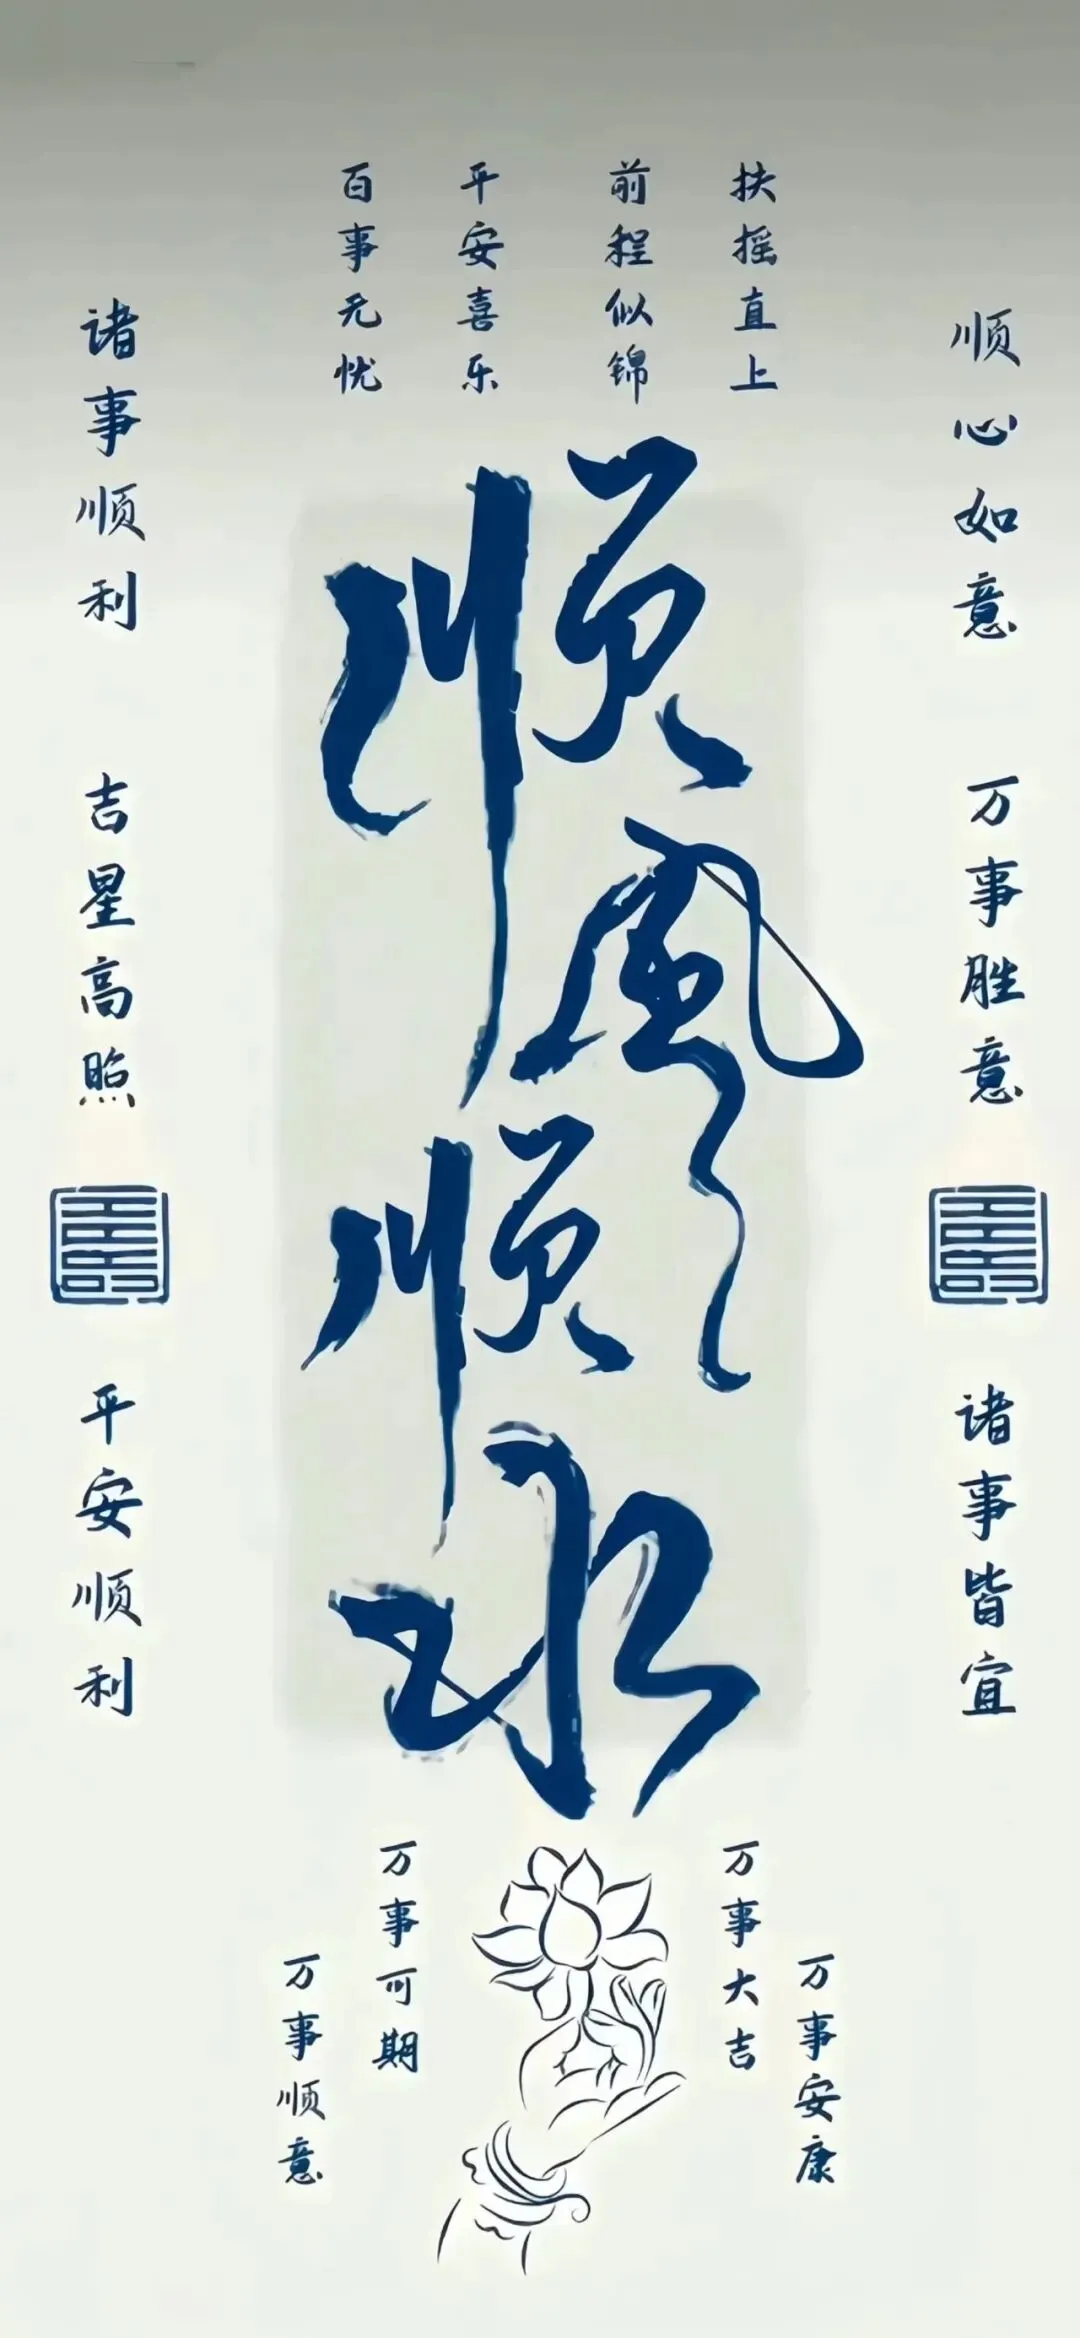 扶摇直上
前程似锦
平安喜乐
百事无忧
顺心如意
万事胜意
诸事皆宜
顺风顺水
诸事顺利
吉星高照
平安顺利
万事安康
万事大吉
万事可期
万事顺意